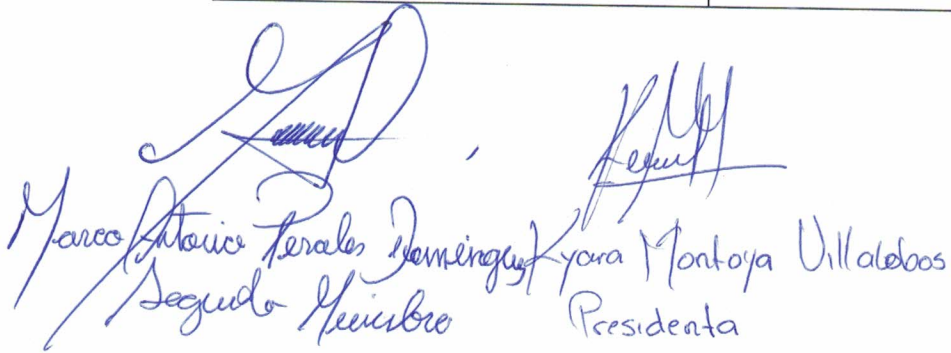 Marco Antonio Perales Domínguez
Segundo Miembro
Kyara Montoya Villalobos
Presidenta